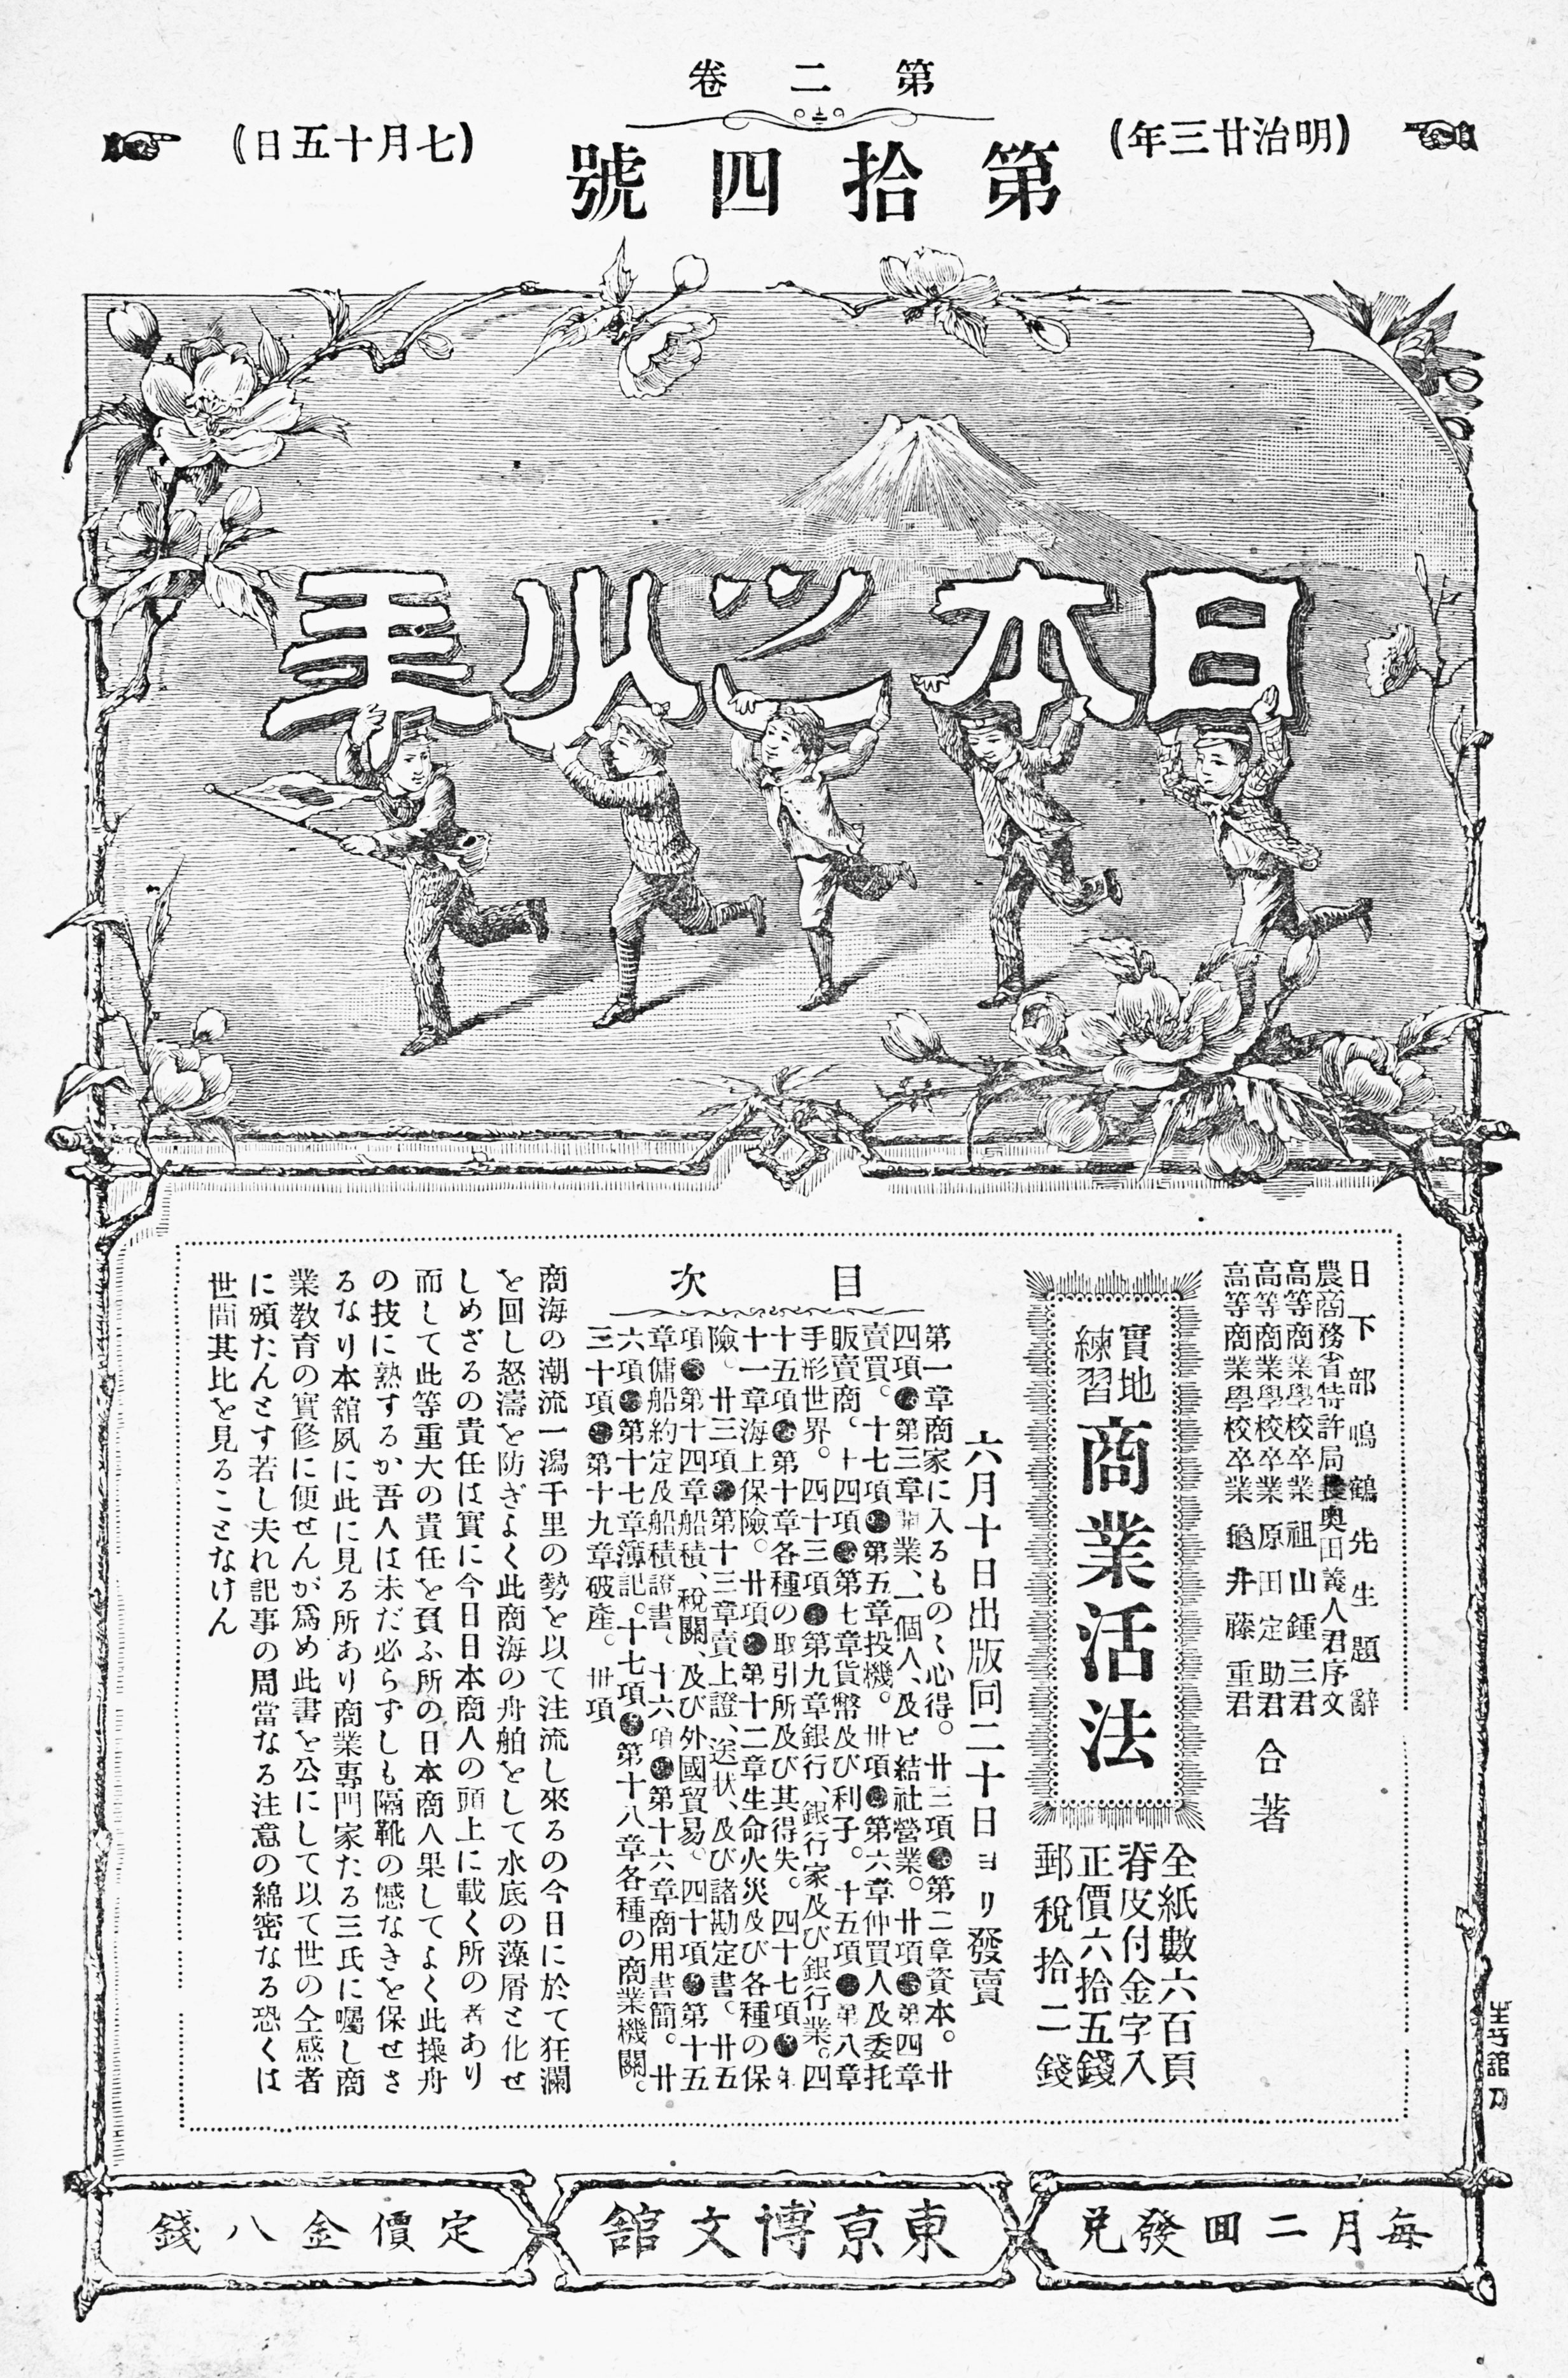 第二卷
第拾四號
(明治廿三年)
(七月十五日)
日本之少年
日下部鳴鶴先生題辭
農商務省特許局長奥田義人君序文
高等商業學校卒業祖山鍾三君
高等商業學校卒業原田定助君
高等商業學校卒業龜井藤重君
合著
實地練習
商業活法
全紙數六百頁
脊皮付金字入
正價六拾五錢
郵税拾二錢
六月十日出版同二十日ヨリ發賣
目次
第一章商家に入るものゝ心得。廿三項●第二章資本。廿
四項●第三章商業、一個人、及ビ結社營業。廿項●第四章
賣買。十七項●第五章投機。卅項●第六章仲買人及委托
販賣商。十四項●第七章貨幣及び利子。十五項●第八章
手形世界。四十三項●第九章銀行、銀行家及び銀行業。四
十五項●第十章各種の取引所及び其得失。四十七項●第
十一章海上保險。廿項●第十二章生命火災及び各種の保
險。廿三項●第十三章賣上證、送状、及び諸勘定書。廿五
項●第十四章船積、税關、及び外國貿易。四十項●第十五
章傭船約定及船積證書、十六項●第十六章商用書簡。廿
六項●第十七章簿記。十七項●第十八章各種の商業機關。
三十項●第十九章破產。卅項
商海の潮流一瀉千里の勢を以て注流し來るの今日に於て狂瀾
を回し怒濤を防ぎよく此商海の舟舶をして水底の藻屑と化せ
しめざるの責任は實に今日日本商人の頭上に載く所の者あり
而して此等重大の責任を負ふ所の日本商人果してよく此操舟
の技に熟するか吾人は未だ必らずしも隔靴の憾なきを保せさ
るなり本舘夙に此に見る所あり商業專門家たる三氏に囑し商
業教育の實修に便せんが爲め此書を公にして以て世の仝感者
に頒たんとす若し夫れ記事の周當なる注意の綿密なる恐くは
世間其比を見ることなけん
生巧館刀
毎月二回發兌
東京博文舘
定價金八錢